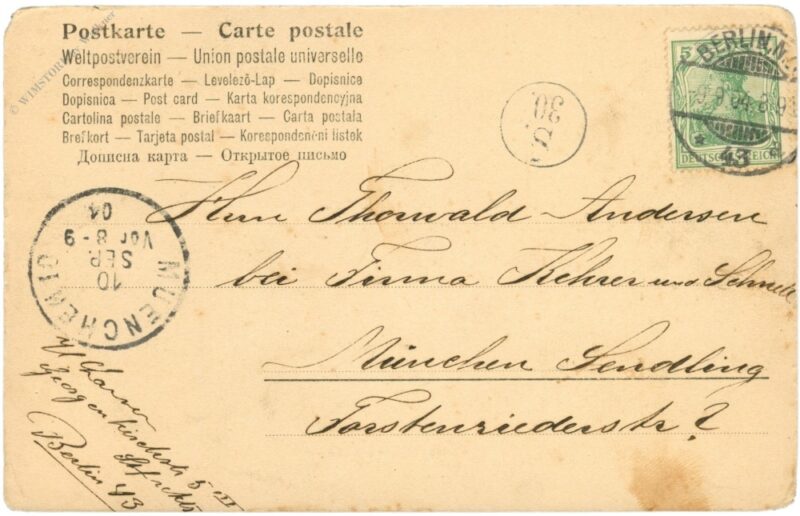 Postkarte — Carte postale
Weltpostverein — Union postale universelle
Correspondenzkarte — Levelező-Lap — Dopisnice
Dopisnica — Post card — Karta korespondencyjna
Cartolina postale — Briefkaart — Carta postala
Brefkort — Tarjeta postal — Korespondenčni listek
Дописна карта — Открытое письмо
BERLIN.N.
9.9.04.8-9
43
DEUTSCHES REICH
5
30.
MUENCHEN
10
SEP.
Vor 8-9
04
Herrn Thorwald Andersen
bei Firma Kehrer und Schnell
München Sendling
Forstenriederstr?
Georgenkirchstr 5 III
Berlin 43
© WIMSTOR